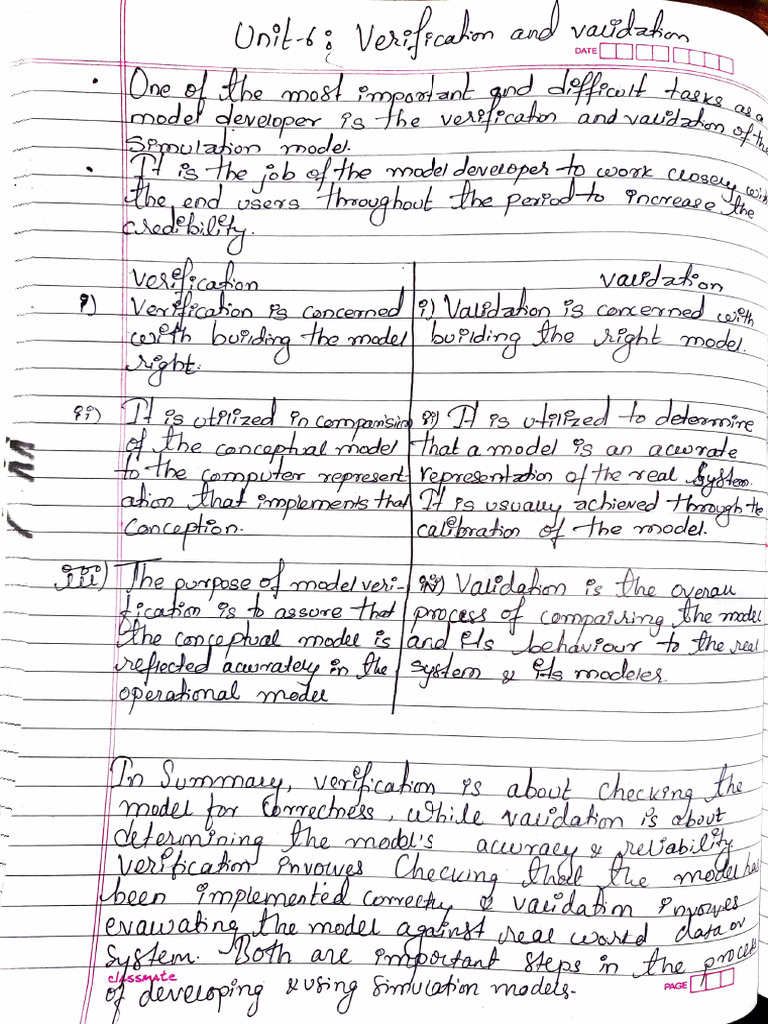 Unit-6: Verification and validation
DATE
• One of the most important and difficult tasks as a
model developer is the verification and validation of the
simulation model.
• It is the job of the model developer to work closely with
the end users throughout the period to increase the
credibility.
Verification
i) Verification is concerned
with building the model
right.
ii) It is utilized in comparision
of the conceptual model
to the computer represent-
ation that implements that
conception.
iii) The purpose of model veri-
fication is to assure that
the conceptual model is
reflected accurately in the
operational model
validation
i) Validation is concerned with
building the right model.
ii) It is utilized to determine
that a model is an accurate
representation of the real system.
It is usually achieved through the
calibration of the model.
iii) Validation is the overall
process of comparing the model
and its behaviour to the real
system & its modeles.
In Summary, verification is about checking the
model for correctness, while validation is about
determining the model's accuracy & reliability
verification involves checking that the model has
been implemented correctly & validation involves
evaluating the model against real world data or
system. Both are important steps in the process
classmate
PAGE
of developing & using simulation models.